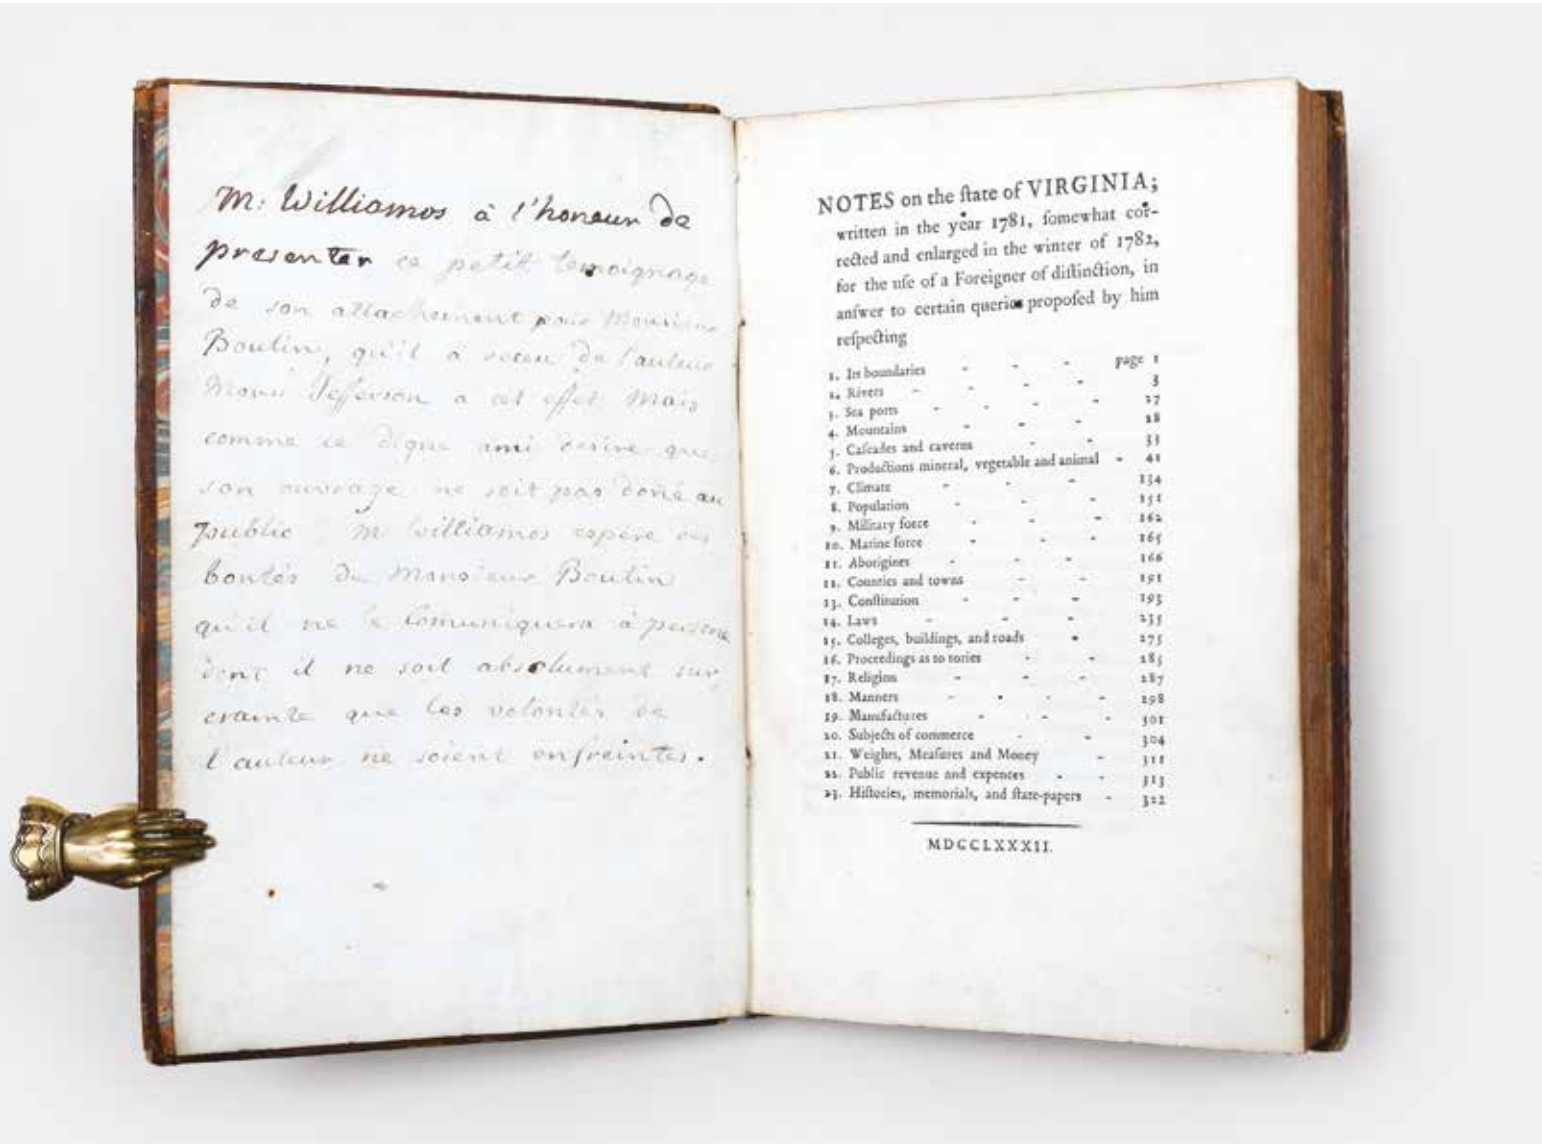 M. Williamos à l'honeur de
presenter ce petit temoignage
de son attachement pour Monsieur
Boutin, qu'il à receu de l'auteur
Monsr Jefferson a cet effet Mais
comme ce digne ami desire que
son ouvrage ne soit pas doné au
public M. Williamos espère des
bontés de Monsieur Boutin
qu'il ne le Comuniquera à persone
dont il ne soit absolument sur,
crainte que les volontés de
l'auteur ne soient enfreintes.
NOTES on the ſtate of VIRGINIA;
written in the year 1781, ſomewhat cor-
rected and enlarged in the winter of 1782,
for the uſe of a Foreigner of diſtinction, in
anſwer to certain queries propoſed by him
reſpecting
1. Its boundaries - - - page 1
2. Rivers - - - - 3
3. Sea ports - - - 27
4. Mountains - - - 28
5. Caſcades and caverns - - 33
6. Productions mineral, vegetable and animal - 41
7. Climate - - - 134
8. Population - - - 151
9. Military force - - - 162
10. Marine force - - - 165
11. Aborigines - - - 166
12. Counties and towns - - 191
13. Conſtitution - - - 193
14. Laws - - - 235
15. Colleges, buildings, and roads - 275
16. Proceedings as to tories - - 285
17. Religion - - - 287
18. Manners - - - - 298
19. Manufactures - - - 301
20. Subjects of commerce - - 304
21. Weights, Meaſures and Money - 311
22. Public revenue and expences - - 313
23. Hiſtories, memorials, and ſtate-papers - 322
MDCCLXXXII.